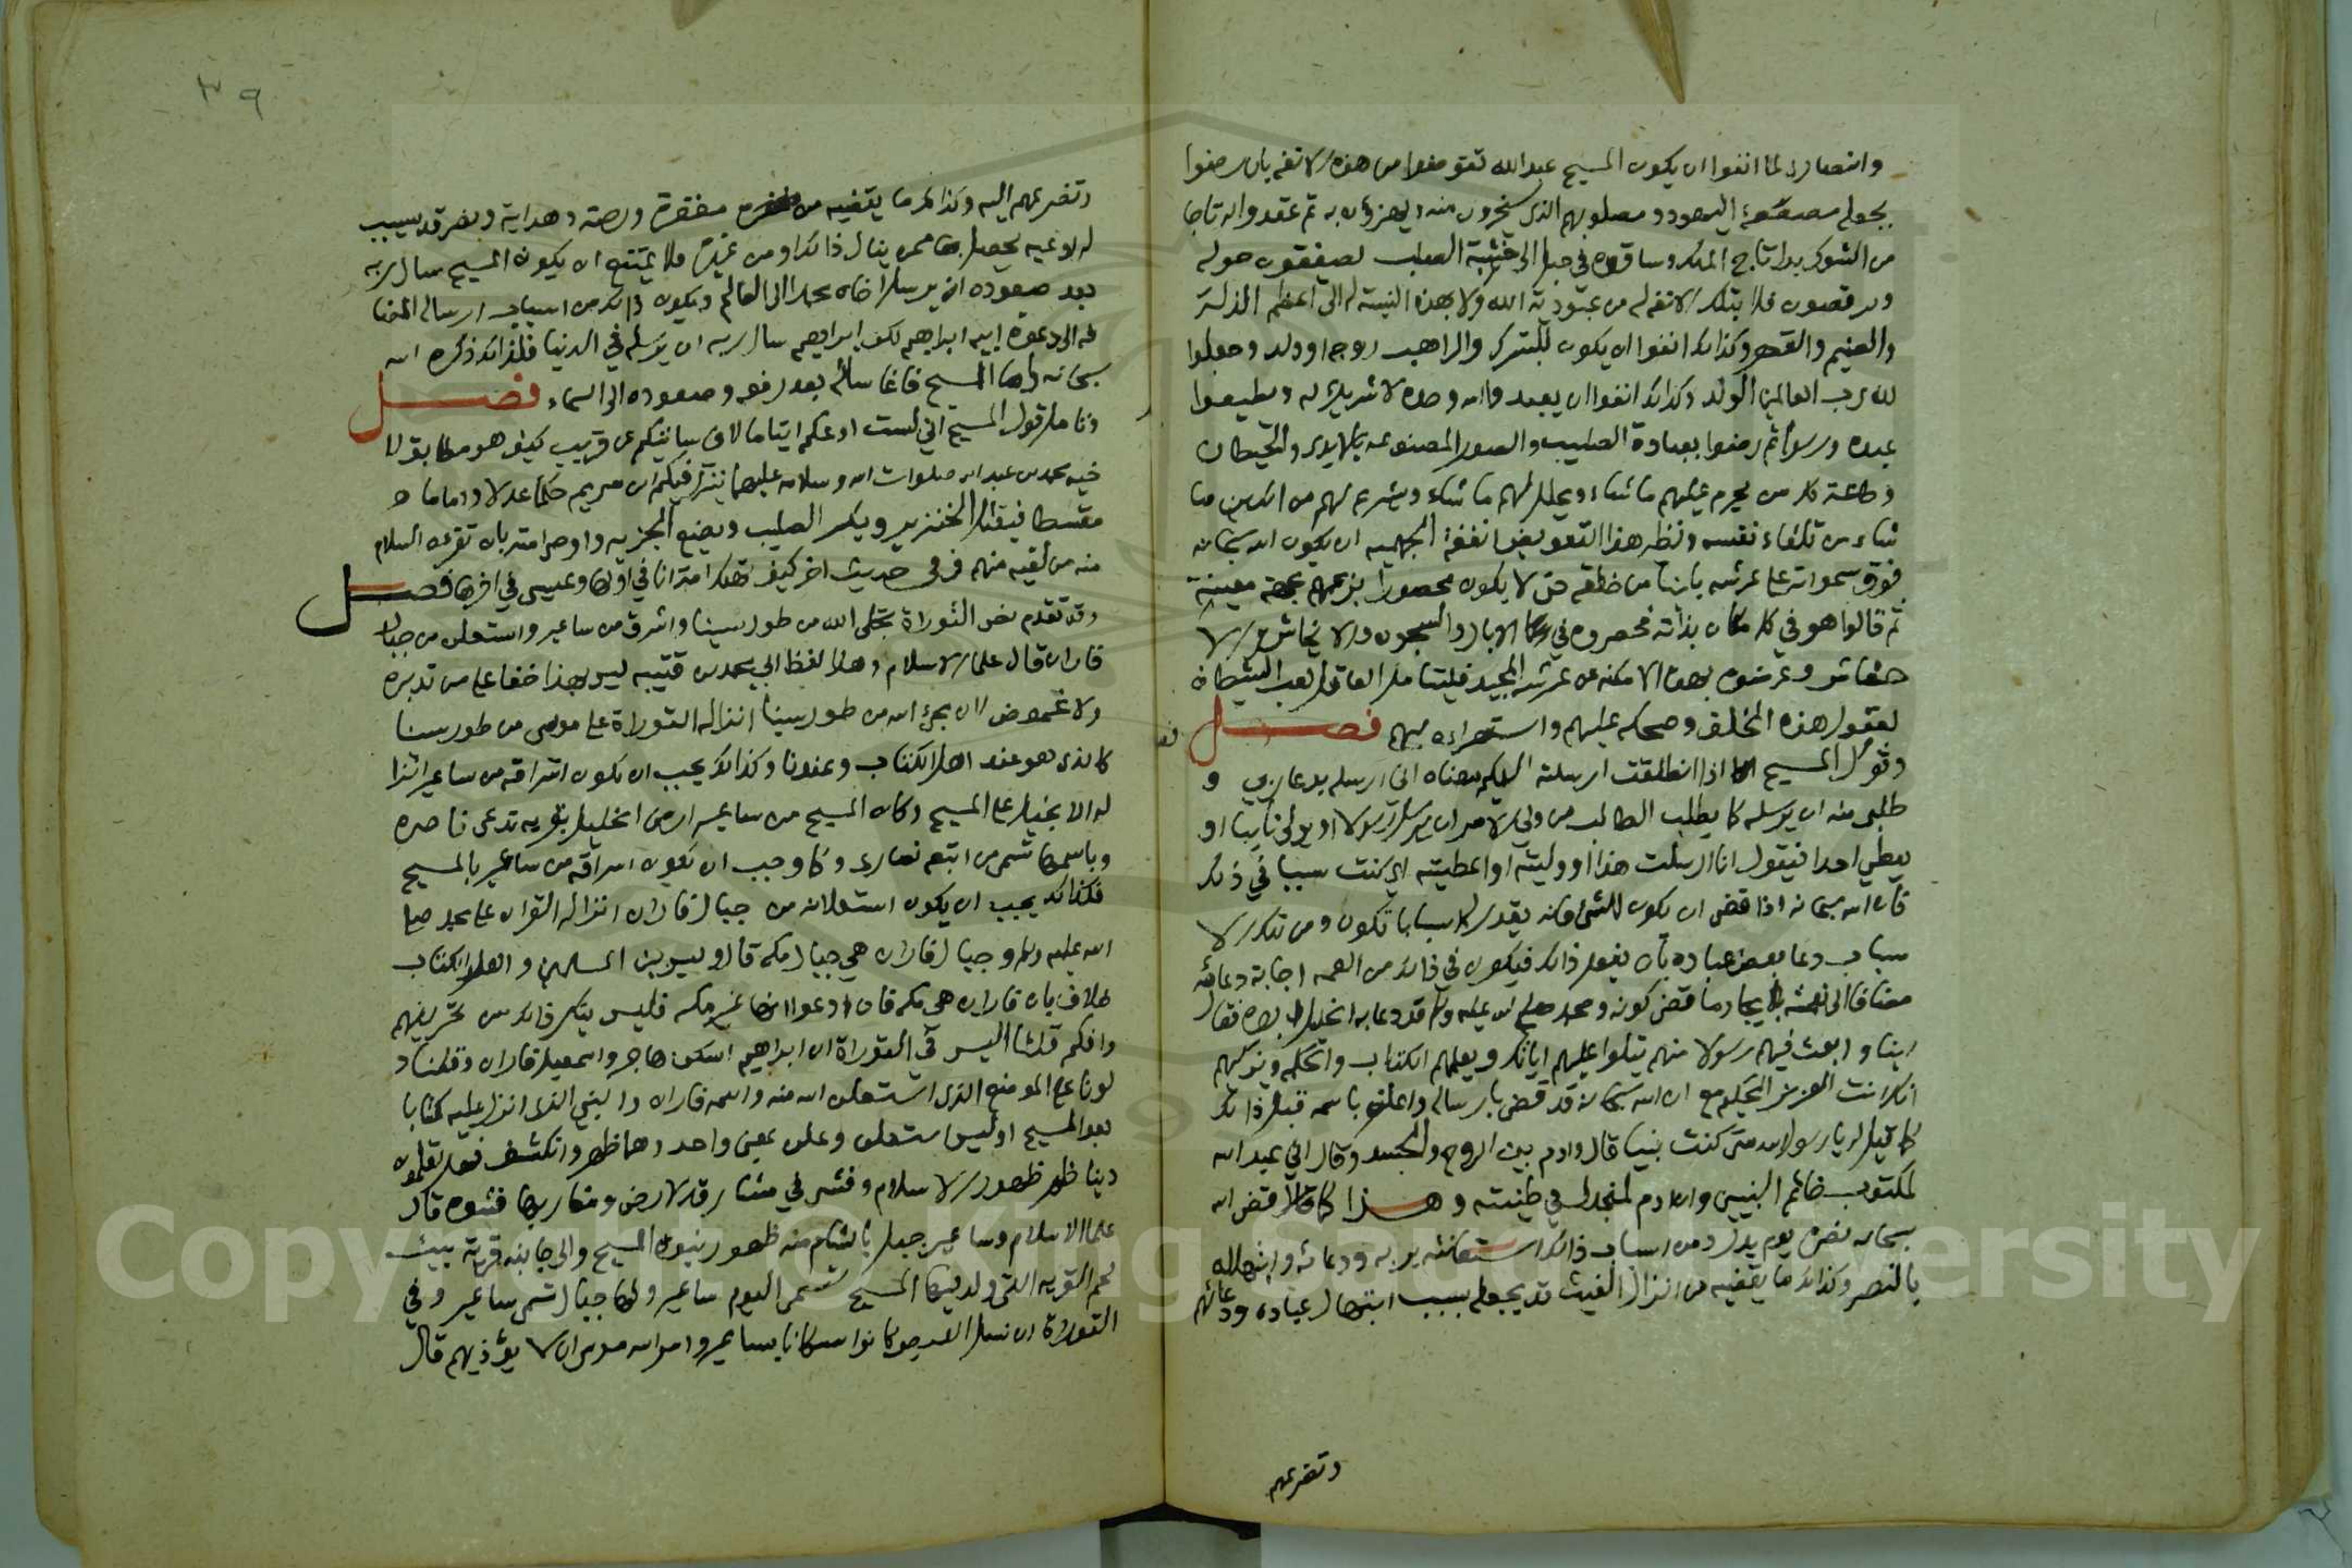 والنصارى لما انفوا ان يكون المسيح عبدا لله تعوضوا من هذه الانفه بان رضوا
بجعله مصفعة اليهود ومصلوبهم الذي يسخرون منه ويهزؤن به ثم عقدوا له تاجا
من الشوك بدل تاج الملك وساقوه في حبل الى خشبة الصلب يصفقون حوله
ويرقصون فلا بتلك الانفه له من عبودية الله ولا بهذه النسبة له الى اعظم الذل
والضيم والقهر وكذلك انفوا ان يكون للبترك والراهب زوجه او ولد وجعلوا
لله رب العالمين الولد وكذلك انفوا ان يعبدوا الله وحده لا شريك له ويطيعوا
عبده ورسوله ثم رضوا بعبادة الصليب والصور المصنوعه بالايدي والحيطان
وطاعة كل من يحرم عليهم ما شاء ويحلل لهم ما شاء ويشرع لهم من الدين ما
شاء من تلقاء نفسه ونظير هذا التعويض انفة الجهميه ان يكون الله سبحانه
فوق سمواته على عرشه باينا من خلقه حتى لا يكون محصورا بزعمهم بجهة معينة
ثم قالوا هو في كل مكان بذاته فحصروه في الابار والسجون والانجاش والا
خشاش وعوضوه بهذه الامكنه عن عرشه المجيد فليتامل العاقل لعب الشيطان
بعقول هذه الخلق وضحكه عليهم واستهزاءه بهم فصل
وقول المسيح اذا انطلقت ارسلته اليكم معناه اني ارسله بدعا ربي و
طلبي منه ان يرسله كما يطلب الطالب من ولي الامر ان يرسل رسولا او يولي نايبا او
يعطي احدا فيقول انا ارسلت هذا او وليته او اعطيته اي كنت سببا في ذلك
فان الله سبحانه اذا قضى ان يكون الشي فانه يقدر له اسبابا تكون ومن تلك الا
سباب دعا بعض عباده بان يفعل ذلك فيكون في ذلك من النعمه اجابة دعائه
مضافا الى نعمته بايجاد ما قضى كونه ومحمد صلى الله عليه وسلم قد دعا به الخليل ابوه فقال
ربنا وابعث فيهم رسولا منهم يتلوا عليهم اياتك ويعلمهم الكتاب والحكمه ويزكيهم
انك انت العزيز الحكيم مع ان الله سبحانه قد قضى بارساله واعلن باسمه قبل ذلك
كما قيل له يا رسول الله متى كنت نبيا قال وادم بين الروح والجسد وقال اني عبد الله
لمكتوب خاتم النبيين وان ادم لمنجدل في طينته وهذا كما قضى الله
سبحانه نصره يوم بدر ومن اسباب ذلك استغاثته بربه ودعائه وابتهاله
بالنصر وكذلك ما يقضيه من انزال الغيث قد يجعله بسبب ابتهال عباده ودعائهم
وتضرعهم
٣٩
وتضرعهم اليه وكذلك ما يقضيه من مغفرة ورحمة وهداية ونصر قد يسبب
له ادعيه يحصل بها ممن ينال ذلك او من غيره فلا يمتنع ان يكون المسيح سال ربه
بعد صعوده ان يرسل اخاه محمدا الى العالم ويكون ذلك من اسباب ارساله المضا
فه الى دعوة ابيه ابراهيم لكن ابراهيم سال ربه ان يرسله في الدنيا فلذلك ذكره الله
سبحانه واما المسيح فانما سأله بعد رفعه وصعوده الى السماء فصل
وتامل قول المسيح اني لست ادعكم ايتاما لاني ساتيكم عن قريب كيف هو مطابق لا
خيه محمد بن عبد الله صلوات الله وسلامه عليهما ينزل فيكم ابن مريم حكما عدلا واماما
مقسطا فيقتل الخنزير ويكسر الصليب ويضع الجزيه واوصى امته بان تقرءه السلام
منه من لقيه منهم وفي حديث اخر كيف تهلك امة انا في اولها وعيسى في اخرها فصل
وقد تقدم نص التوراة تجلى الله من طور سينا واشرق من ساعير واستعلن من جبال
فاران قال علماء الاسلام وهذا لفظ ابي محمد بن قتيبه ليس بهذا خفا على من تدبره
ولا غموض لان مجيء الله من طور سينا انزاله التوراة على موسى من طور سينا
كالذي هو عند اهل الكتاب وعندنا وكذلك يجب ان يكون اشراقه من ساعير انزا
له الانجيل على المسيح وكان المسيح من ساعير ارض الخليل بقريه تدعى ناصره
وباسمها تسمى من اتبعه نصارى وكما وجب ان يكون اشراقه من ساعير بالمسيح
فكذلك يجب ان يكون استعلانه من جبال فاران انزاله القران على محمد صلى
الله عليه وسلم وجبال فاران هي جبال مكه قال وليس بين المسلمين واهل الكتاب
خلاف بان فاران هي مكه فان ادعوا انها غير مكه فليس ينكر ذلك من تحريفهم
وافكهم قلنا اليس في التوراة ان ابراهيم اسكن هاجر واسمعيل فاران وقلنا د
لونا على الموضع الذي استعلن الله منه واسمه فاران والنبي الذي انزل عليه كتابا
بعد المسيح اوليس استعلن وعلن بمعنى واحد وهما ظهر وانكشف فهل تعلمون
دينا ظهر ظهور الاسلام وفشى في مشارق الارض ومغاربها فشوه قال
علما الاسلام وساعير جبل بالشام منه ظهور نبوة المسيح والى جانبه قرية بيت
لحم القريه التي ولد فيها المسيح تسمى اليوم ساعير ولها جبال تسمى ساعير وفي
التوراة ان نسل العيص كانوا سكانا بساعير وامر الله موسى ان لا يؤذيهم قال
Copyright © King Saud University